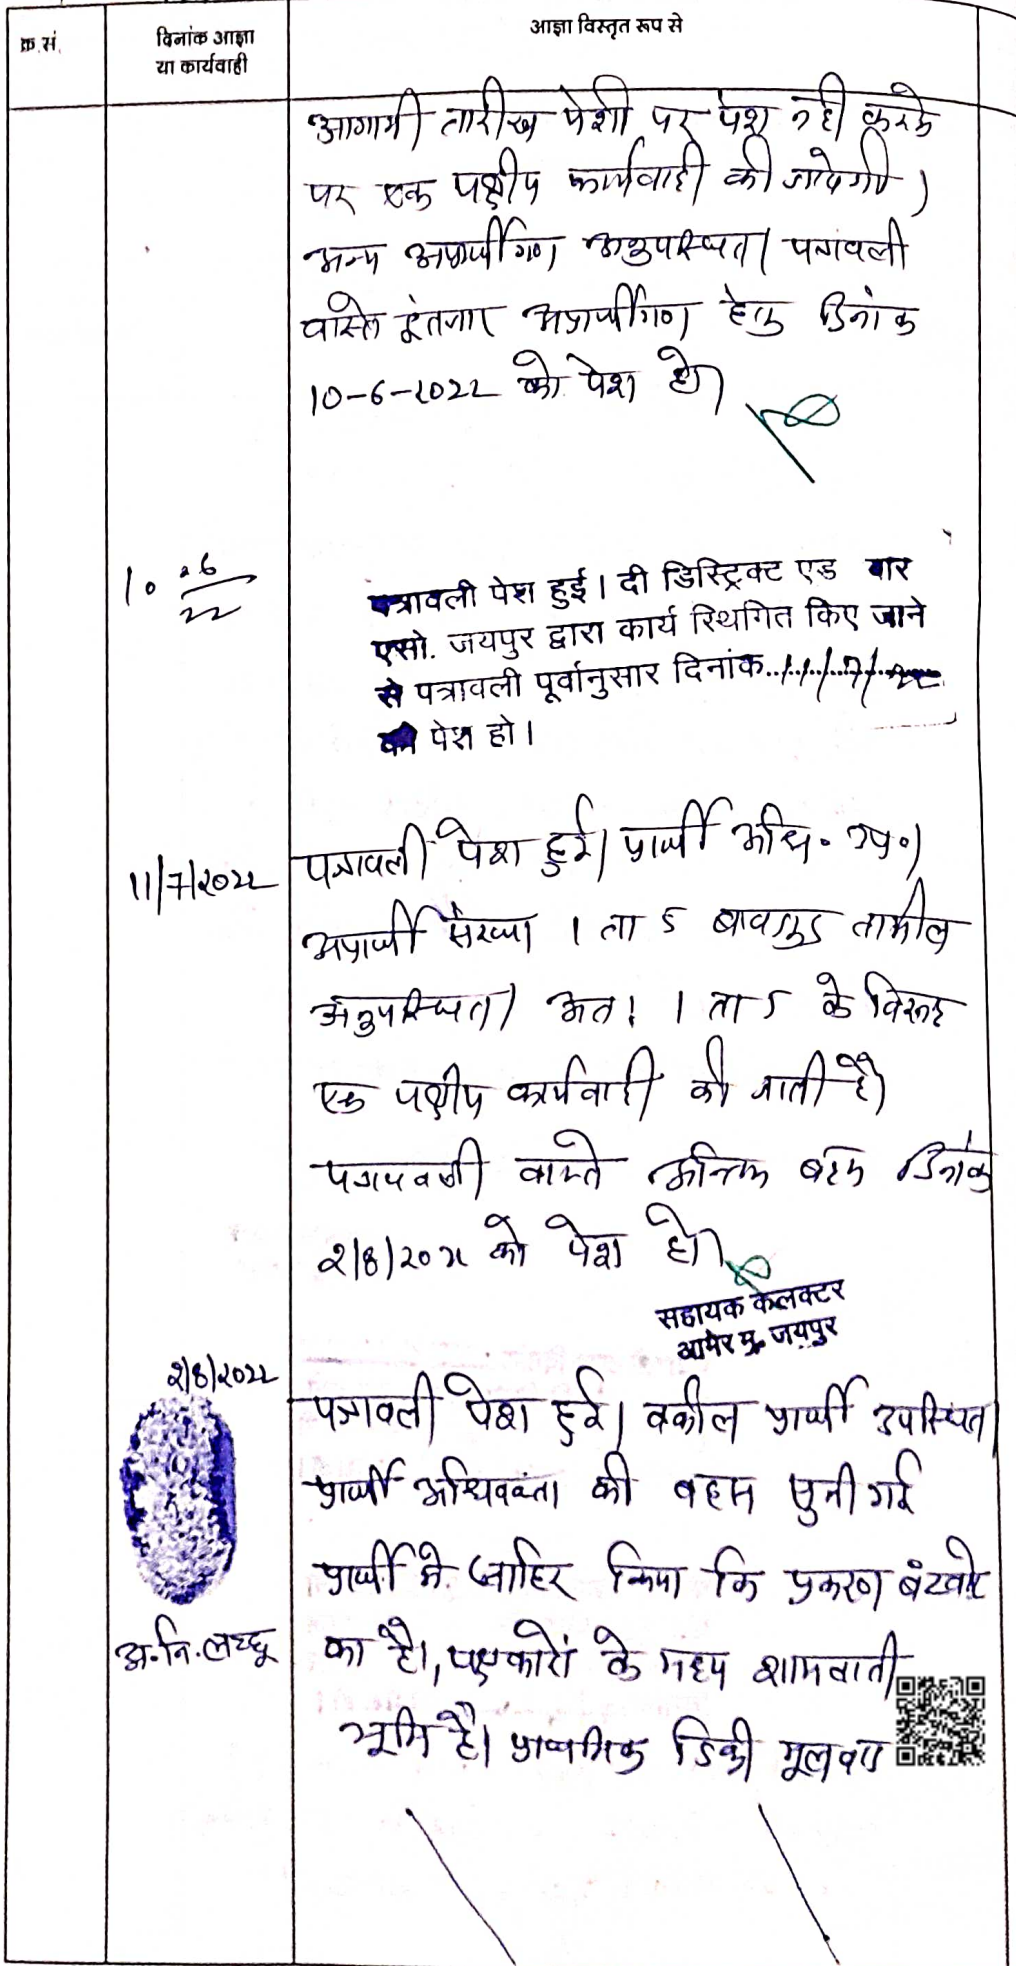 क्र.सं.
दिनांक आज्ञा
या कार्यवाही
आज्ञा विस्तृत रूप से
आगामी तारीख पेशी पर पेश नही करके
पर एक पक्षीय कार्यवाही की जावेगी।
अन्य अप्रार्थीगण अनुपस्थित। पत्रावली
वास्ते इंतजार अप्रार्थीगण हेतु दिनांक
10-6-2022 को पेश हो।
10.6
22
पत्रावली पेश हुई। दी डिस्ट्रिक्ट एड बार
एसो. जयपुर द्वारा कार्य स्थिगित किए जाने
से पत्रावली पूर्वानुसार दिनांक..11/7/22
को पेश हो।
11/7/2022
पत्रावली पेश हुई। प्रार्थी अधि. उप.।
अप्रार्थी संख्या 1 ता 5 बावजूद तामील
अनुपस्थित। अतः 1 ता 5 के विरूद्ध
एक पक्षीय कार्यवाही की जाती है।
पत्रावली वास्ते अन्तिम बहस दिनांक
2/8/2022 को पेश हो।
सहायक कलक्टर
आमेर मु. जयपुर
2/8/2022
पत्रावली पेश हुई। वकील प्रार्थी उपस्थित।
प्रार्थी अधिवक्ता की बहस सुनी गई
प्रार्थी ने जाहिर किया कि प्रकरण बंटवारे
अ.नि.लच्छू
का है।, पक्षकारों के मध्य शामलाती
भूमि है। प्राथमिक डिक्री मूलवाद